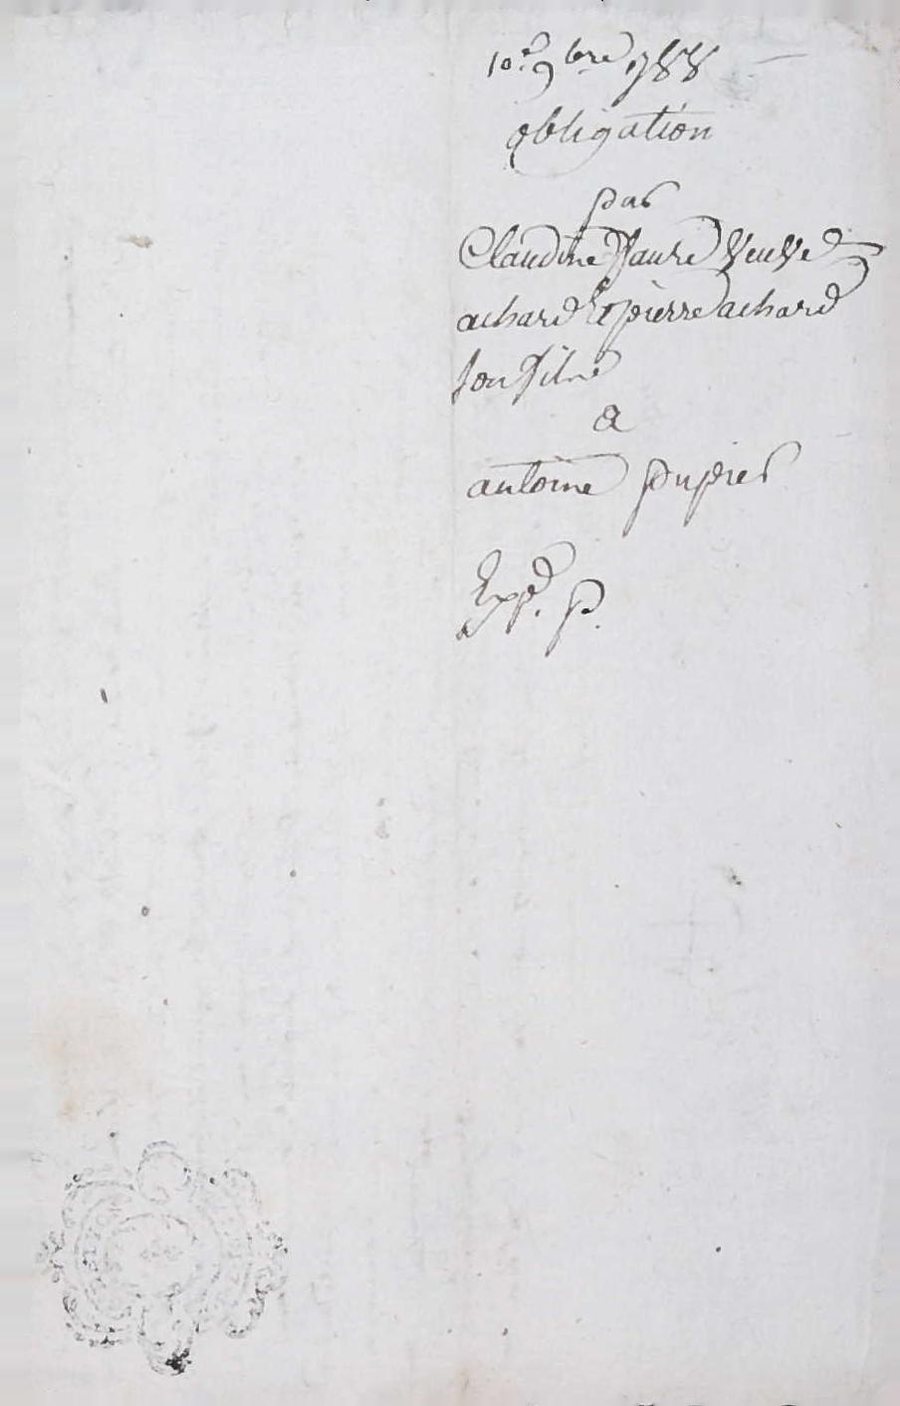 10.e 9bre 788
obligation
par
Claudine faure Veuve
achard et pierre achard
son fils
a
antoine Dupré
Expé. D.